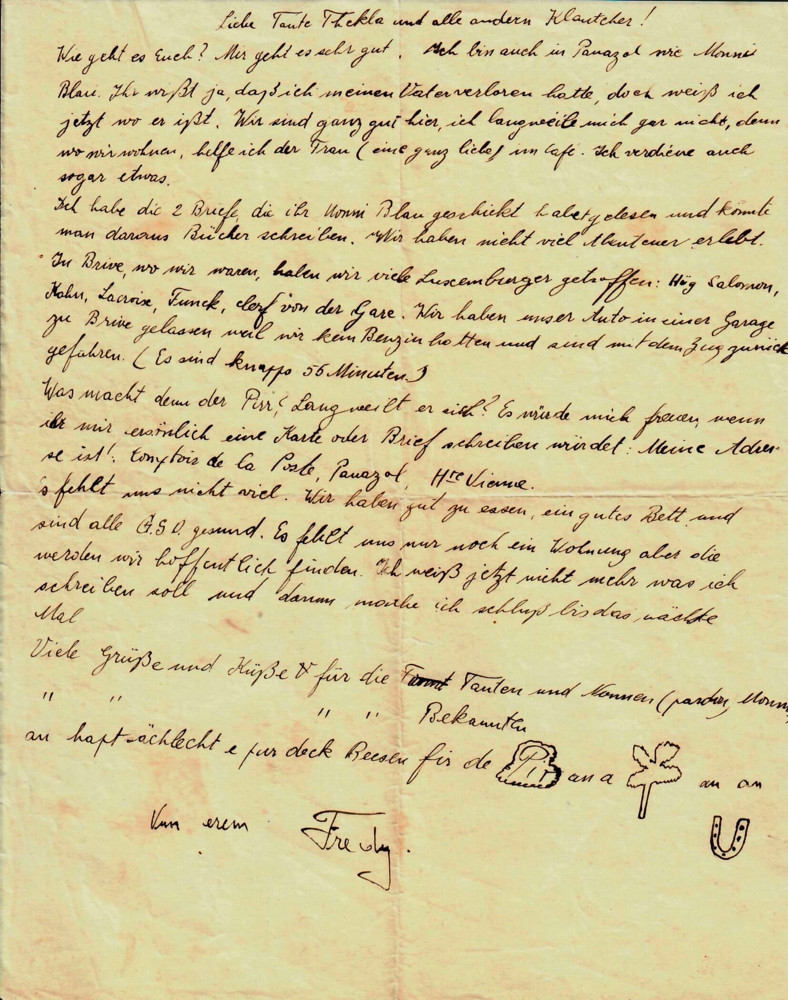 Liebe Tante Thekla und alle andern Klautcher!
Wie geht es Euch? Mir geht es sehr gut. Ich bin auch in Panazol wie Monni
Blau. Ihr wißt ja, daß ich meinen Vater verloren hatte, doch weiß ich
jetzt wo er ißt. Wir sind ganz gut hier, ich langweile mich gar nicht, denn
wo wir wohnen, helfe ich der Frau (eine ganz liebe) im Café. Ich verdiene auch
sogar etwas.
Ich habe die 2 Briefe, die ihr Monni Blau geschickt habt gelesen und könnte
man daraus Bücher schreiben. Wir haben nicht viel Abenteuer erlebt.
In Brive, wo wir waren, haben wir viele Luxemburger getroffen: Salomon,
Kahn, Lacroix, Funck, Cerf von der Gare. Wir haben unser Auto in einer Garage
zu Brive gelassen weil wir kein Benzin hatten und sind mit dem Zug zurück
gefahren. (Es sind knapps 56 Minuten.)
Was macht denn der Pir? Langweilt er sich? Es würde mich freuen, wenn
ihr mir ersönlich eine Karte oder Brief schreiben würdet: Meine Adres-
se ist: Comptoir de la Poste, Panazol, Hte Vienne.
's fehlt uns nicht viel. Wir haben gut zu essen, ein gutes Bett und
sind alle G.S.D. gesund. Es fehlt uns nur noch ein Wohnung aber die
werden wir hoffentlich finden. Ich weiß jetzt nicht mehr was ich
schreiben soll und darum mache ich schluß bis das nächste
Mal
Viele Grüße und Küße für die Tanten und Nonnen (pardon, Monni
" " " " Bekannten
an haptsächlecht e pur deck Beesen fir de Pir an a an an
Vun erem Fredy.